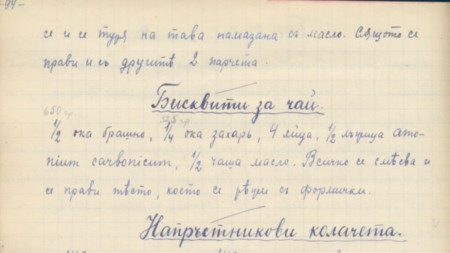 -94-
се и се туря на тава намазана съ масло. Същото се
прави и съ другитѣ 2 парчета.
Бисквити за чай.
650 гр 325 гр
1/2 ока брашно, 1/4 ока захаръ, 4 яйца, 1/2 лъжица amo-
nium carbonicum, 1/2 чаша масло. Всичко се смѣсва и
се прави тѣсто, което се рѣже съ формички.
Напръстникови колачета.